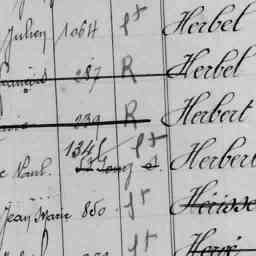 Julien 1064 st Herbel
François 287 R Herbel
239 R Herbert
Paul. 1345 st Herber
Jean Marie 850 st Herisse
st Hervé